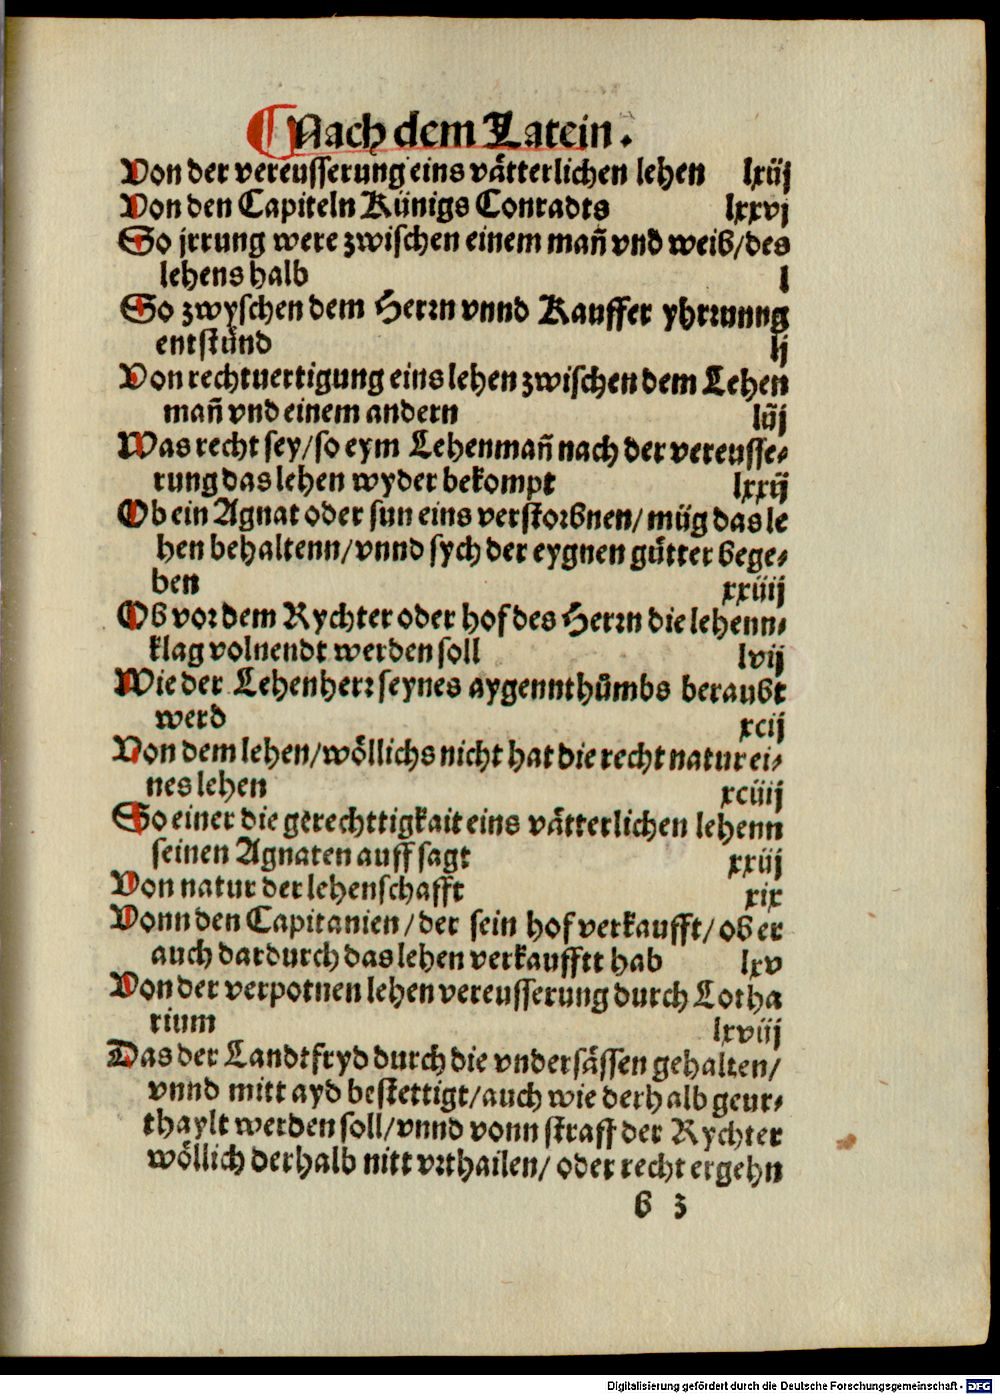 ¶ Nach dem Latein.
Von der vereusserung eins våtterlichen lehen lxiij
Von den Capiteln Künigs Conradts lxxvj
So jrrung were zwischen einem mañ vnd weib/des
lehens halb l
So zwyschen dem Herrn vnnd Kauffer yhrrunng
entstünd lj
Von rechtuertigung eins lehen zwischen dem Lehen
mañ vnd einem andern lüj
Was recht sey/so eym Lehenmañ nach der vereusse-
rung das lehen wyder bekompt lxxij
Ob ein Agnat oder sun eins verstorbnen/müg das le
hen behaltenn/vnnd sych der eygnen gůtter bege-
ben xxiiij
Ob vor dem Rychter oder hof des Herrn die lehenn-
klag volnendt werden soll lvij
Wie der Lehenherr seynes aygennthůmbs beraubt
werd xcij
Von dem lehen/wöllichs nicht hat die recht natur ei-
nes lehen xciiij
So einer die gerechttigkait eins våtterlichen lehenn
seinen Agnaten auff sagt xxiij
Von natur der lehenschafft xix
Vonn den Capitanien/der sein hof verkaufft/ob er
auch dardurch das lehen verkaufftt hab lxv
Von der verpotnen lehen vereusserung durch Lotha
rium lxviij
Das der Landtfryd durch die vndersåssen gehalten/
vnnd mitt ayd bestettigt/auch wie derhalb geur-
thaylt werden soll/vnnd vonn straff der Rychter
wöllich derhalb nitt vrthailen/oder recht ergehn
b 3
Digitalisierung gefördert durch die Deutsche Forschungsgemeinschaft - DFG